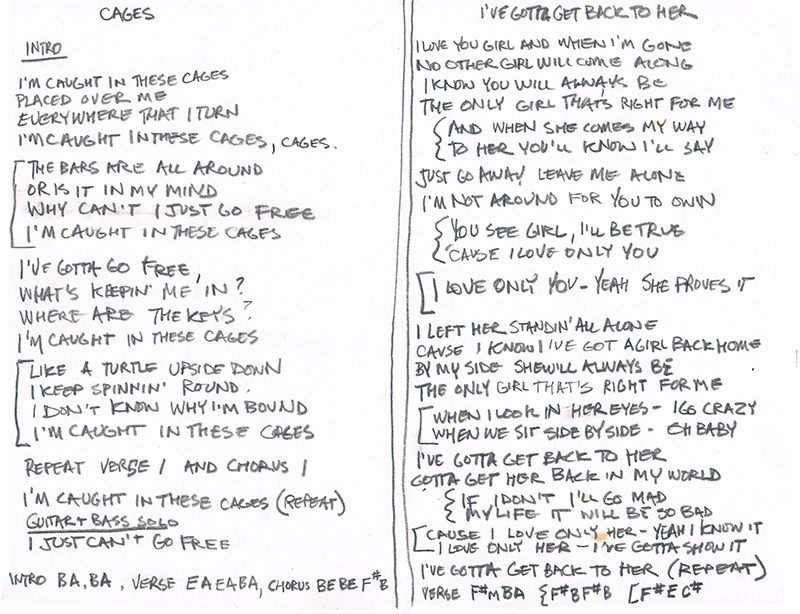 CAGES
INTRO
I'M CAUGHT IN THESE CAGES
PLACED OVER ME
EVERYWHERE THAT I TURN
I'M CAUGHT IN THESE CAGES, CAGES.
THE BARS ARE ALL AROUND
OR IS IT IN MY MIND
WHY CAN'T I JUST GO FREE
I'M CAUGHT IN THESE CAGES
I'VE GOTTA GO FREE,
WHAT'S KEEPIN' ME IN?
WHERE ARE THE KEY'S?
I'M CAUGHT IN THESE CAGES
LIKE A TURTLE UPSIDE DOWN
I KEEP SPINNIN' ROUND.
I DON'T KNOW WHY I'M BOUND
I'M CAUGHT IN THESE CAGES
REPEAT VERSE 1 AND CHORUS 1
I'M CAUGHT IN THESE CAGES (REPEAT)
GUITAR + BASS SOLO
I JUST CAN'T GO FREE
INTRO BA, BA, VERSE EAEABA, CHORUS BEBEF#B
I'VE GOTTA GET BACK TO HER
I LOVE YOU GIRL AND WHEN I'M GONE
NO OTHER GIRL WILL COME ALONG
I KNOW YOU WILL ALWAYS BE
THE ONLY GIRL THAT'S RIGHT FOR ME
{AND WHEN SHE COMES MY WAY
TO HER YOU'LL KNOW I'LL SAY
JUST GO AWAY LEAVE ME ALONE
I'M NOT AROUND FOR YOU TO OWN
{YOU SEE GIRL, I'LL BE TRUE
'CAUSE I LOVE ONLY YOU
[I LOVE ONLY YOU - YEAH SHE PROVES IT
I LEFT HER STANDIN' ALL ALONE
CAUSE I KNOW I I'VE GOT A GIRL BACK HOME
BY MY SIDE SHE WILL ALWAYS BE
THE ONLY GIRL THAT'S RIGHT FOR ME
[WHEN I LOOK IN HER EYES - I GO CRAZY
WHEN WE SIT SIDE BY SIDE - OH BABY
I'VE GOTTA GET BACK TO HER
GOTTA GET HER BACK IN MY WORLD
{IF I DON'T I'LL GO MAD
MY LIFE IT WILL BE SO BAD
['CAUSE I LOVE ONLY HER - YEAH I KNOW IT
I LOVE ONLY HER - I'VE GOTTA SHOW IT
I'VE GOTTA GET BACK TO HER (REPEAT)
VERSE F#MBA {F#BF#B [F#EC#